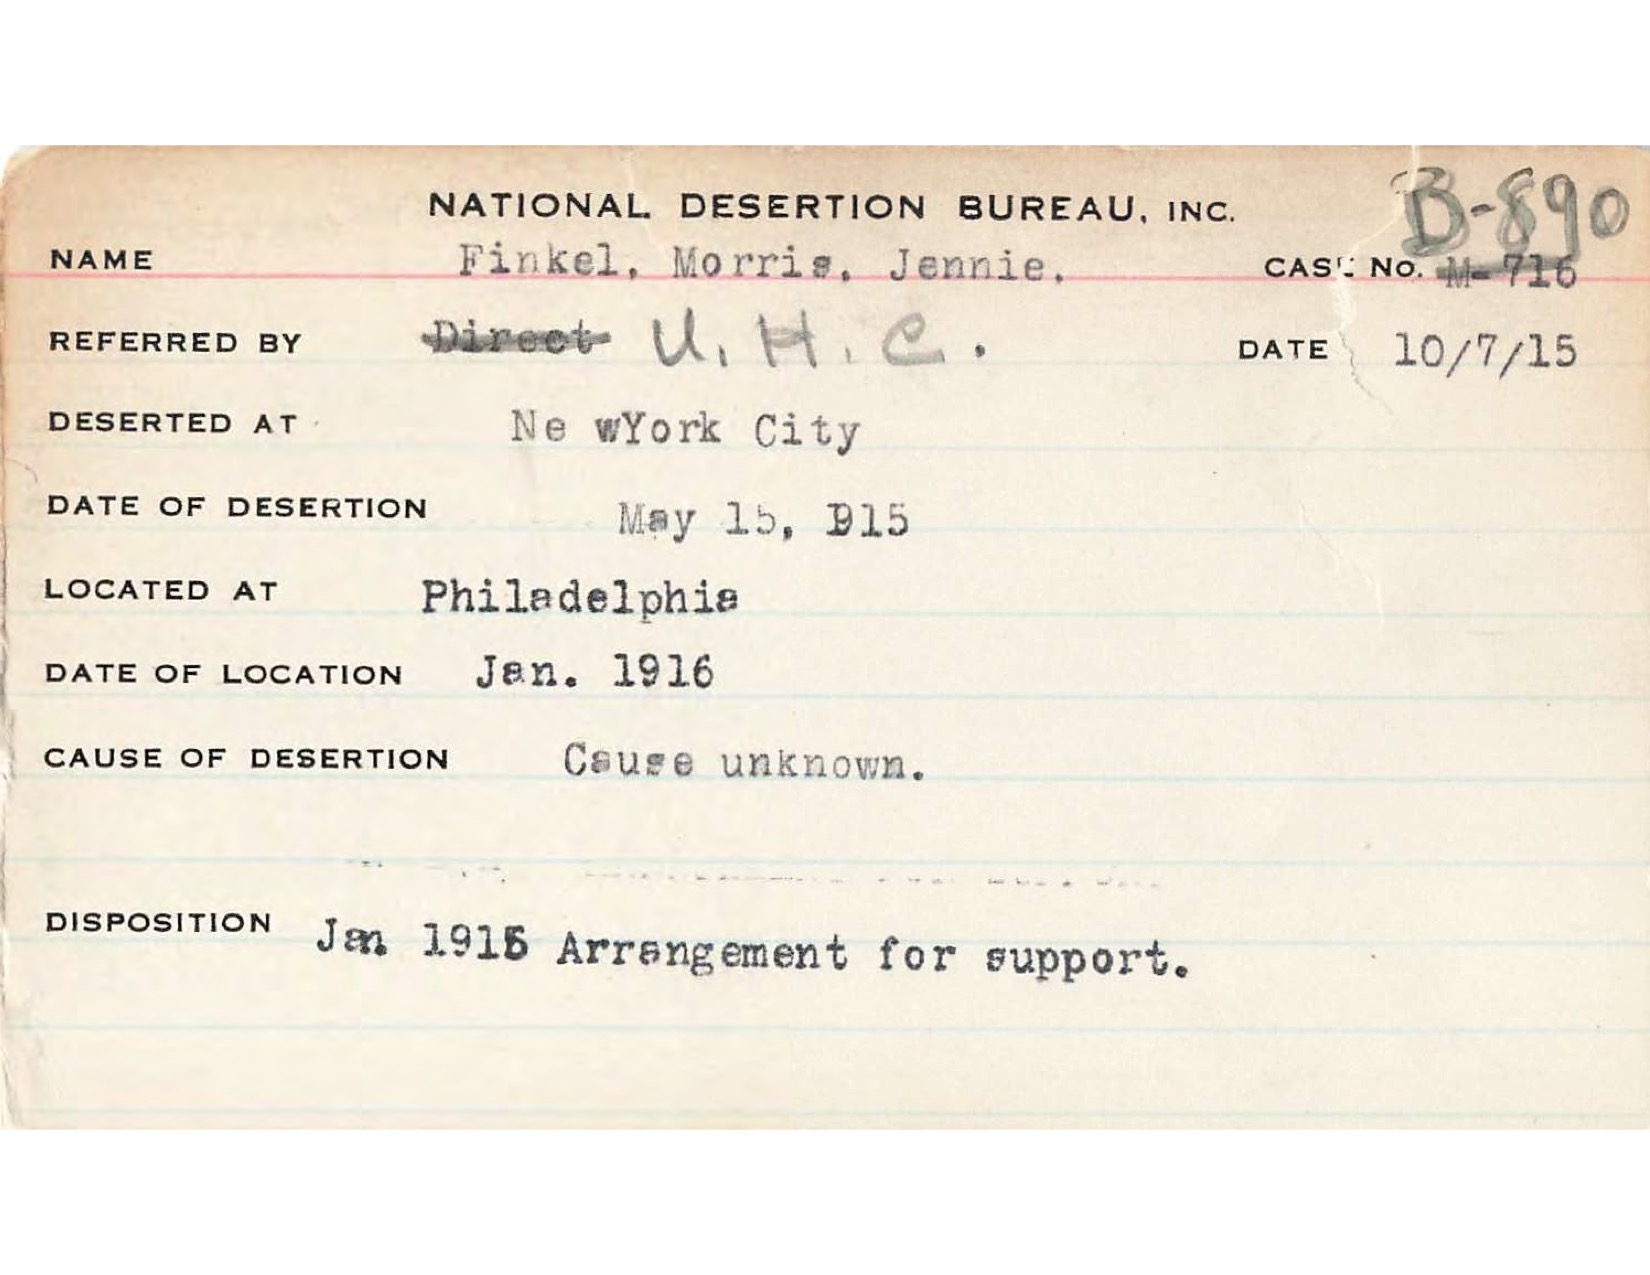 B-890
NATIONAL DESERTION BUREAU, INC.
NAME Finkel, Morris, Jennie. CASE No. M-716
REFERRED BY Direct U. H. C. DATE 10/7/15
DESERTED AT Ne wYork City
DATE OF DESERTION May 15, 1915
LOCATED AT Philadelphia
DATE OF LOCATION Jan. 1916
CAUSE OF DESERTION Cause unknown.
DISPOSITION Jan 1916 Arrangement for support.